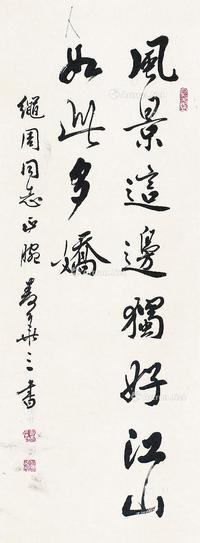 風景這邊獨好江山
如此多嬌
繩周同志正腕 壽華三書